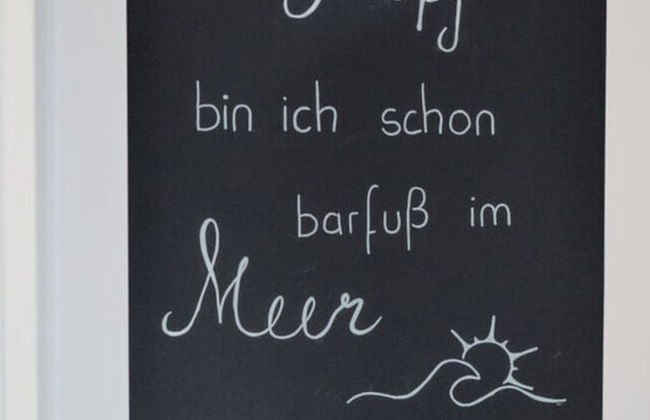 bin ich schon
barfuß im
Meer